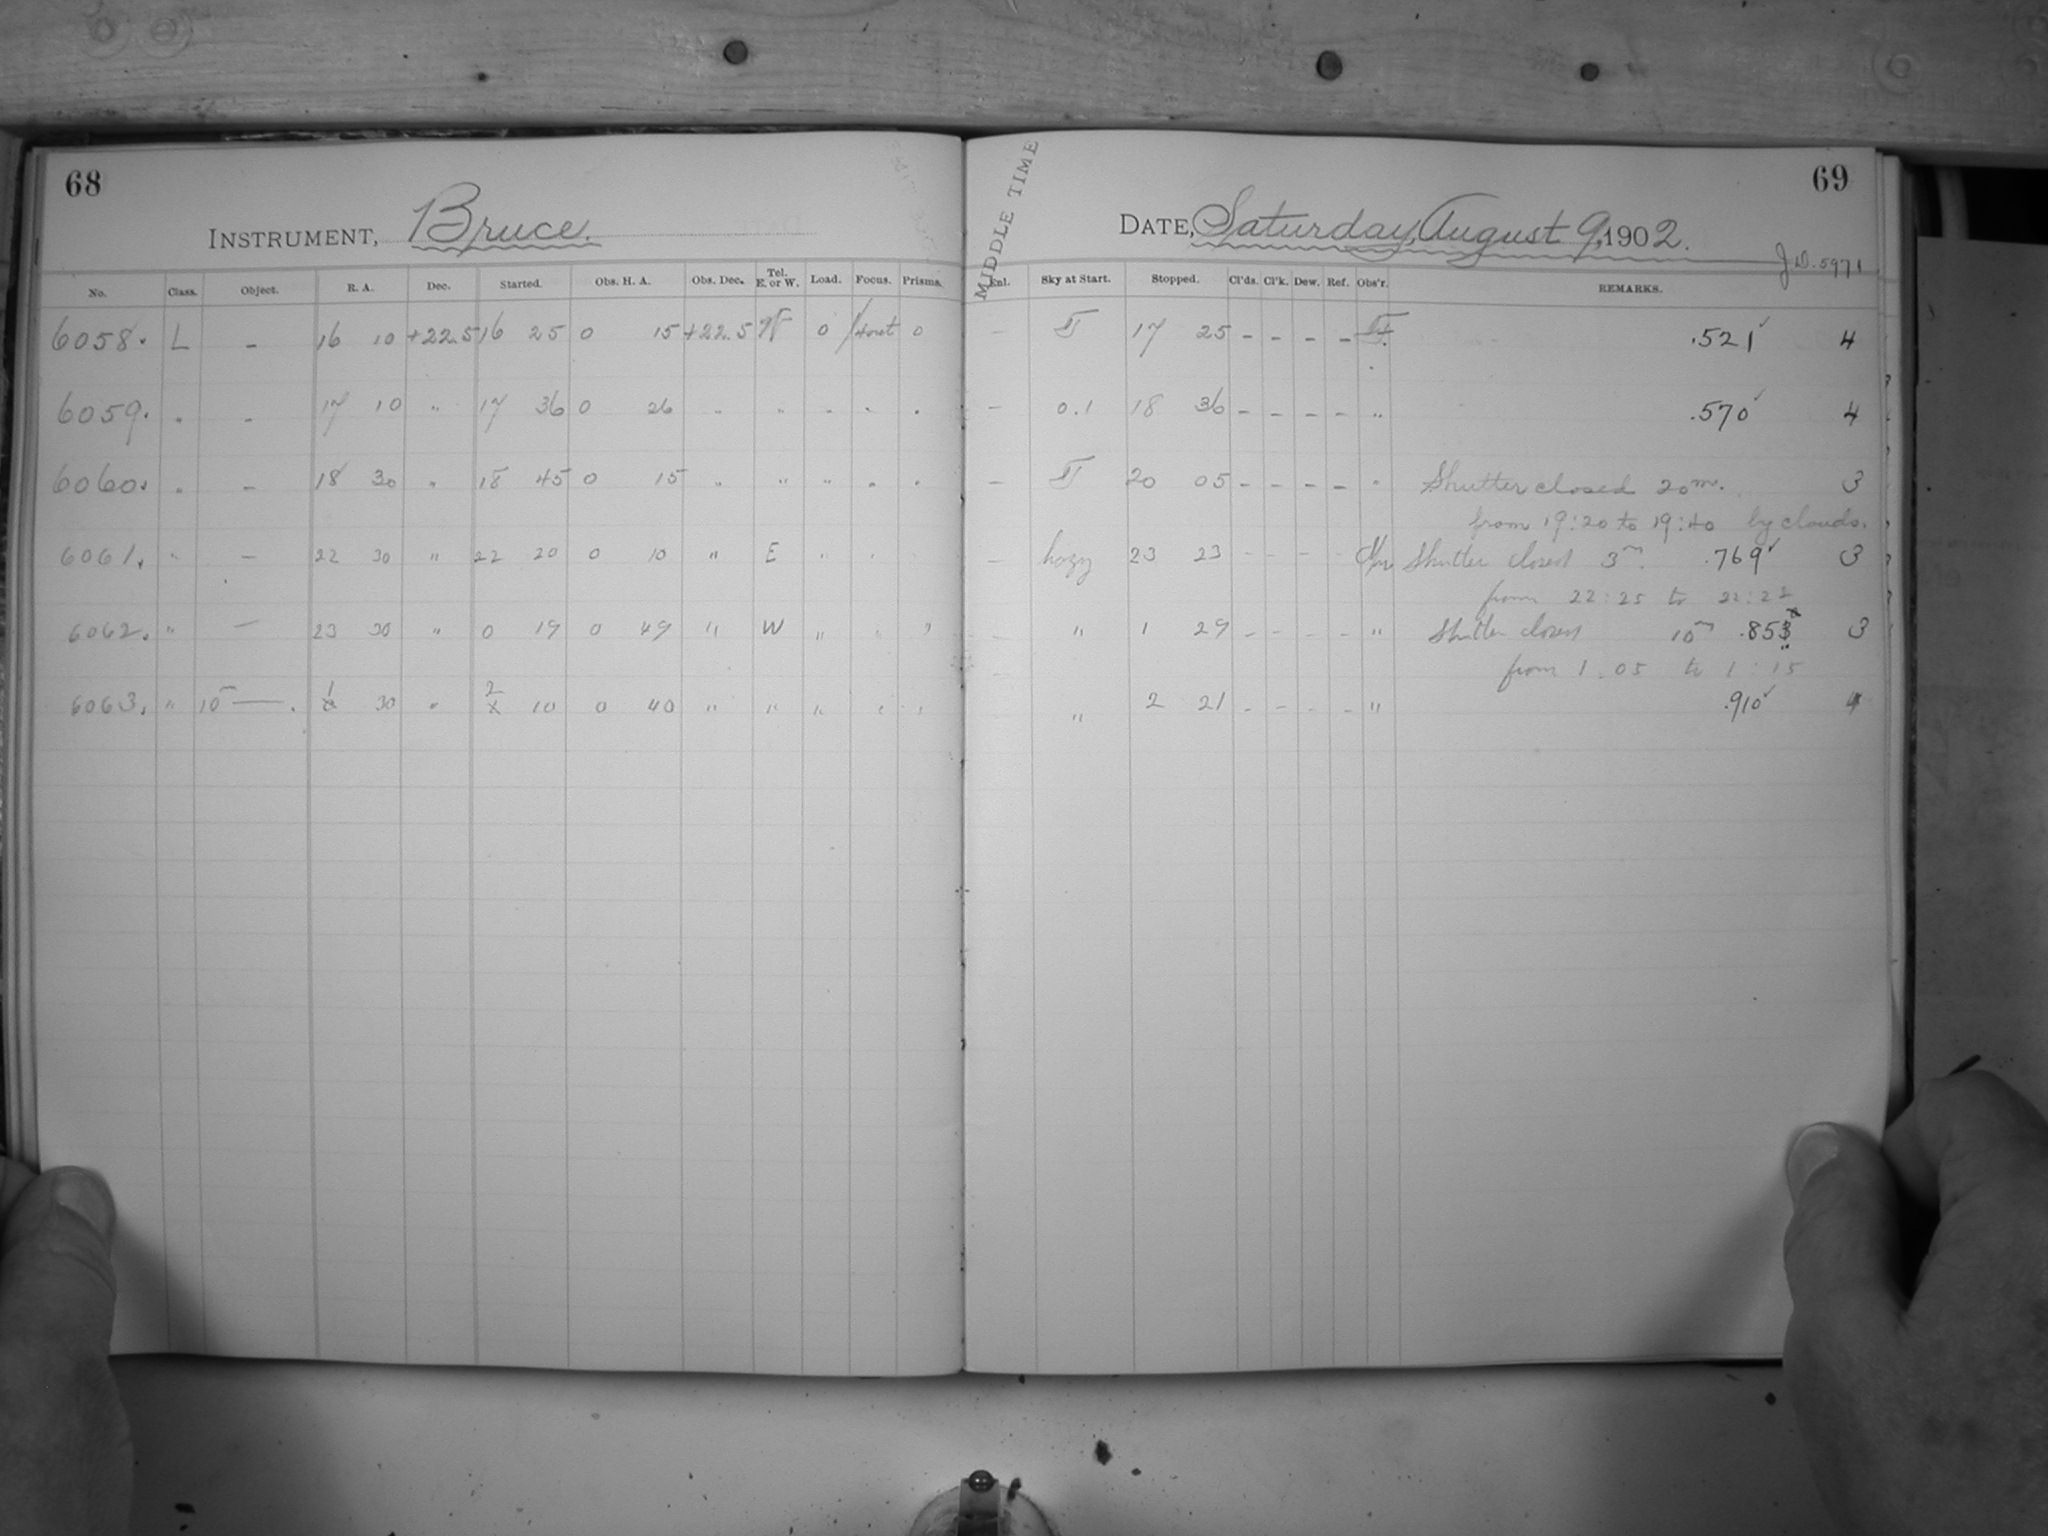 68
INSTRUMENT, Bruce.
No. Class. Object. R. A. Dec. Started. Obs. H. A. Obs. Dec. Tel. E. or W. Load. Focus. Prisms.
6058. L – 16 10 +22.5 16 25 0 15 +22.5 W 0 0
6059. " – 17 10 " 17 36 0 26 " " " " "
6060. " – 18 30 " 18 45 0 15 " " " " "
6061. " – 22 30 " 22 20 0 10 " E " " "
6062. " – 23 30 " 0 19 0 49 " W " " "
6063. " 10m — . 1 30 " 2 10 0 40 " " " " "
MIDDLE TIME
69
DATE, Saturday, August 9, 1902.
J.D. 5971
Enl. Sky at Start. Stopped. Cl'ds. Cl'k. Dew. Ref. Obs'r. REMARKS.
– 17 25 – – – – .521✓ 4
– 0.1 18 36 – – – – " .570✓ 4
– 20 05 – – – – " Shutter closed 20m. 3
from 19:20 to 19:40 by clouds.
– hazy 23 23 – – – – Shutter closed 3m. .769✓ 3
from 22:25 to 22:28
– " 1 29 – – – – " Shutter closed 10m .853 3
from 1.05 to 1:15
" 2 21 – – – – " .910✓ 4